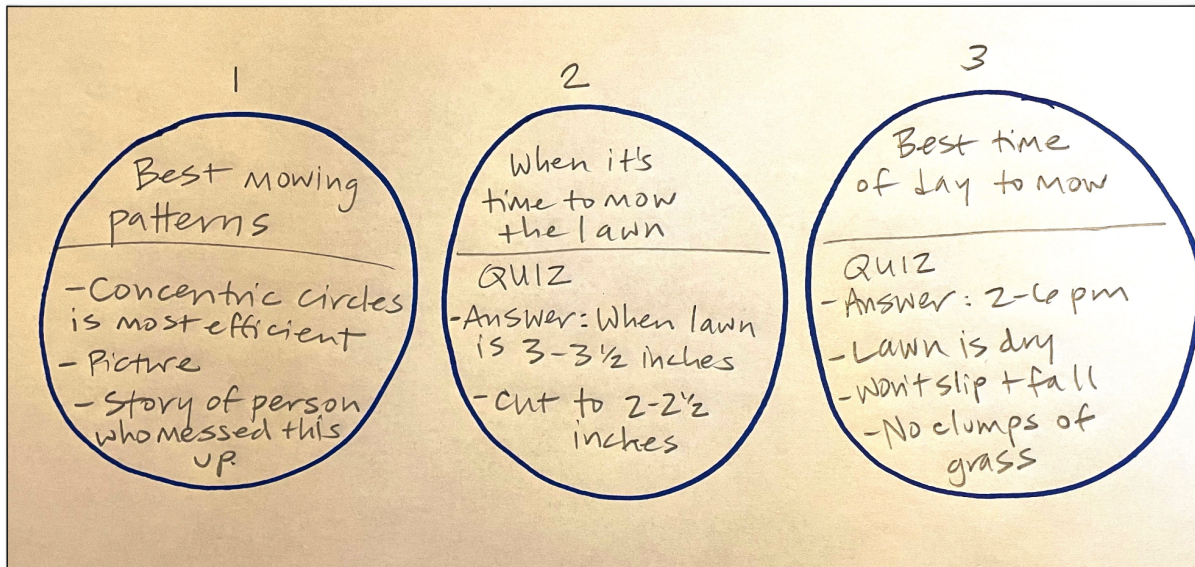 1
Best mowing
patterns
-Concentric circles
is most efficient
-Picture
-Story of person
who messed this
up.
2
When it's
time to mow
the lawn
QUIZ
-Answer: When lawn
is 3-3½ inches
-Cut to 2-2½
inches
3
Best time
of day to mow
QUIZ
-Answer: 2-6 pm
-Lawn is dry
-Won't slip + fall
-No clumps of
grass